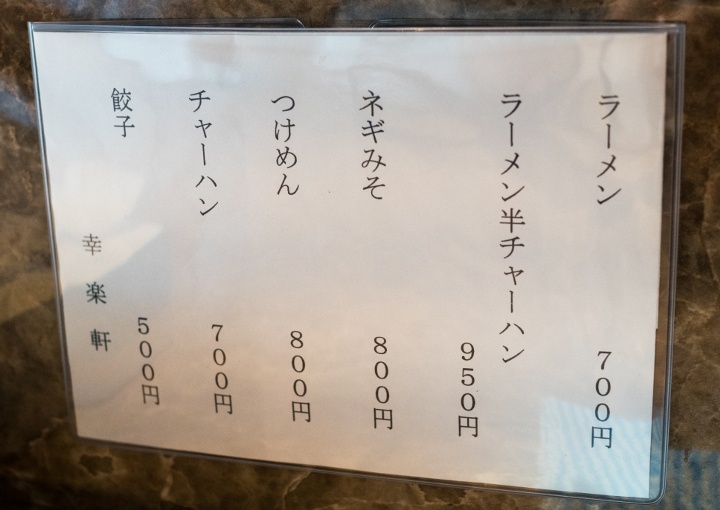 ラーメン
700円
ラーメン半チャーハン
950円
ネギみそ
800円
つけめん
800円
チャーハン
700円
餃子
500円
幸楽軒